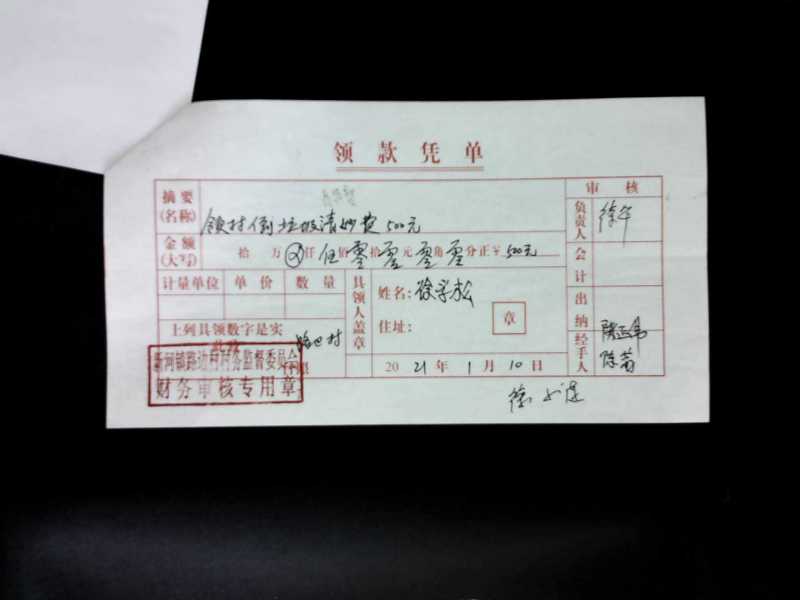 领款凭单
摘要(名称) 领村倒垃圾清妙费500元
审核
负责人 徐
金额(大写) 拾万⊗仟伍佰零拾零元零角零分正¥500元
会计
计量单位 单价 数量
具领人盖章
姓名：徐学松
住址：
章
出纳
上列具领数字是实
此致
路边村
经手人
新河镇路边村村务监督委员会
财务审核专用章
2021年1月10日
徐